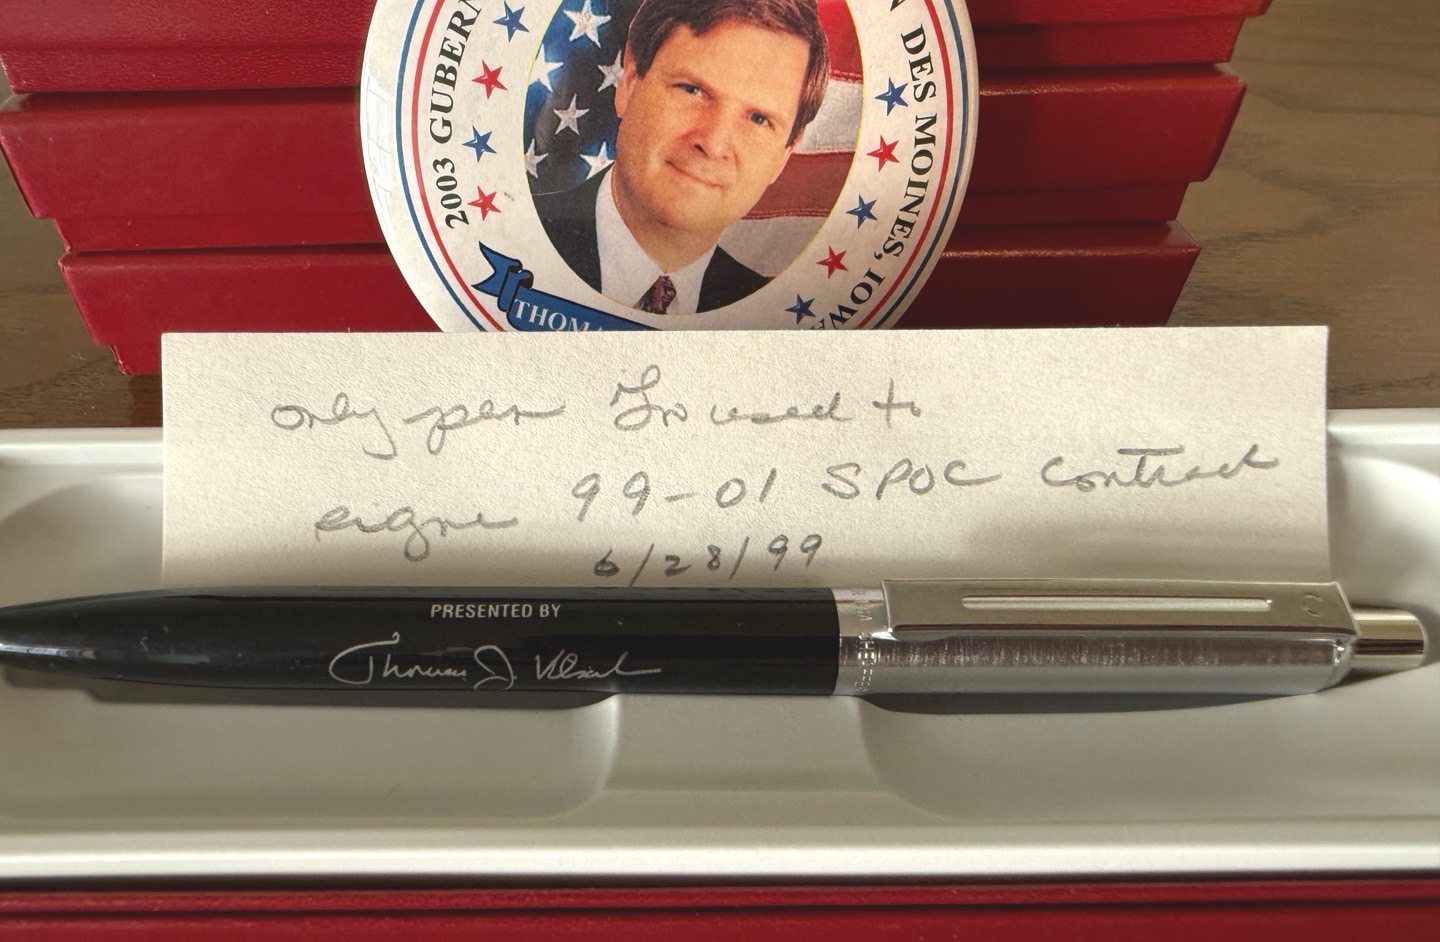 2003 GUBERN
N DES MOINES, IOWA
THOMA
only pen Gov used to
signe 99-01 SPOC Contract
6/28/99
PRESENTED BY
Thomas J. Vilsack